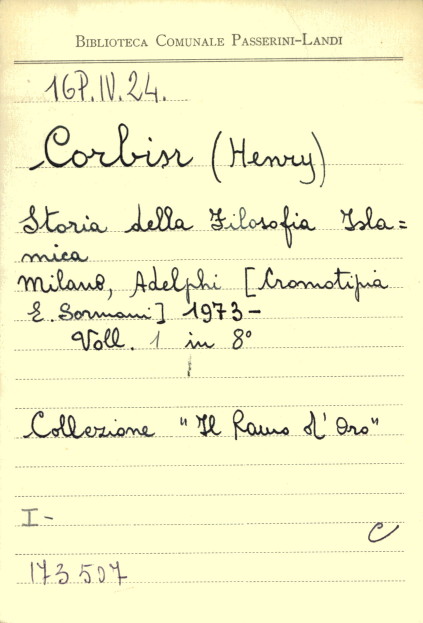 BIBLIOTECA COMUNALE PASSERINI-LANDI
16P.IV.24.
Corbin (Henry)
Storia della Filosofia Isla=
mica
Milano, Adelphi [Cromotipia
E. Sormani] 1973-
Voll. 1 in 8°
Collezione "Il Ramo d'Oro"
I-
C
173507